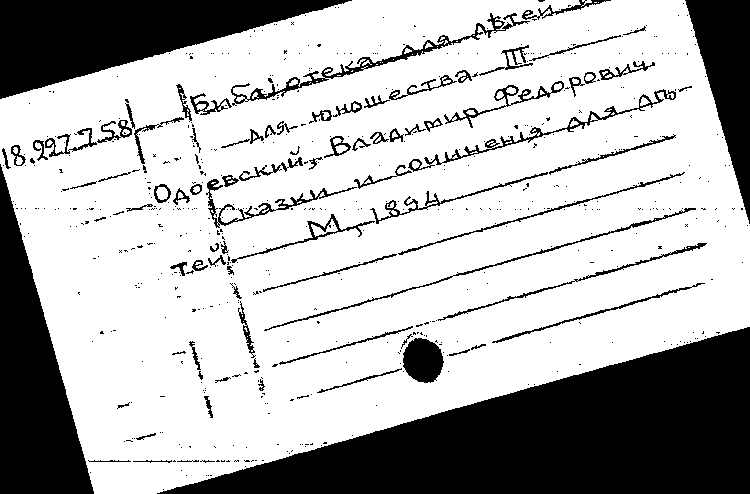 18.227.758
Библіотека для дѣтей и
для юношества III
Одоевский, Владимир Федорович.
Сказки и сочиненія для дѣ-
тей М., 1894